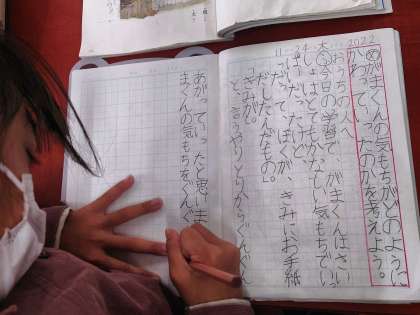 2022
11.24
木
めがまくんの気もちがどのように
かわっていったのかを考えよう。
おうちの人へ
今日の学習で、がまくんはさい
しょはとてもかなしい気もちでいっ
ぱいだったけど、
だって、ぼくが、きみにお手紙
だしたんだもの。
きみが。
と言うやりとりからぐんぐん
あがっていったと思いま
まくんの気もちをぐんぐ